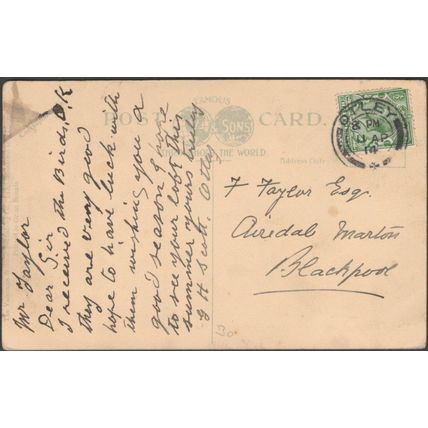 Mr Taylor
Dear Sir
I received the Birds O.K
they are very good
hope to have luck with
them wishing you a
good season & hope
to see your loft this
summer yours truly
J H Scott. Otley
FAMOUS
POST CARD.
& SONS
THROUGHOUT THE WORLD
Address Only
OTLEY
8 PM
AP
F Taylor Esq.
Airedal Marton
Blackpool